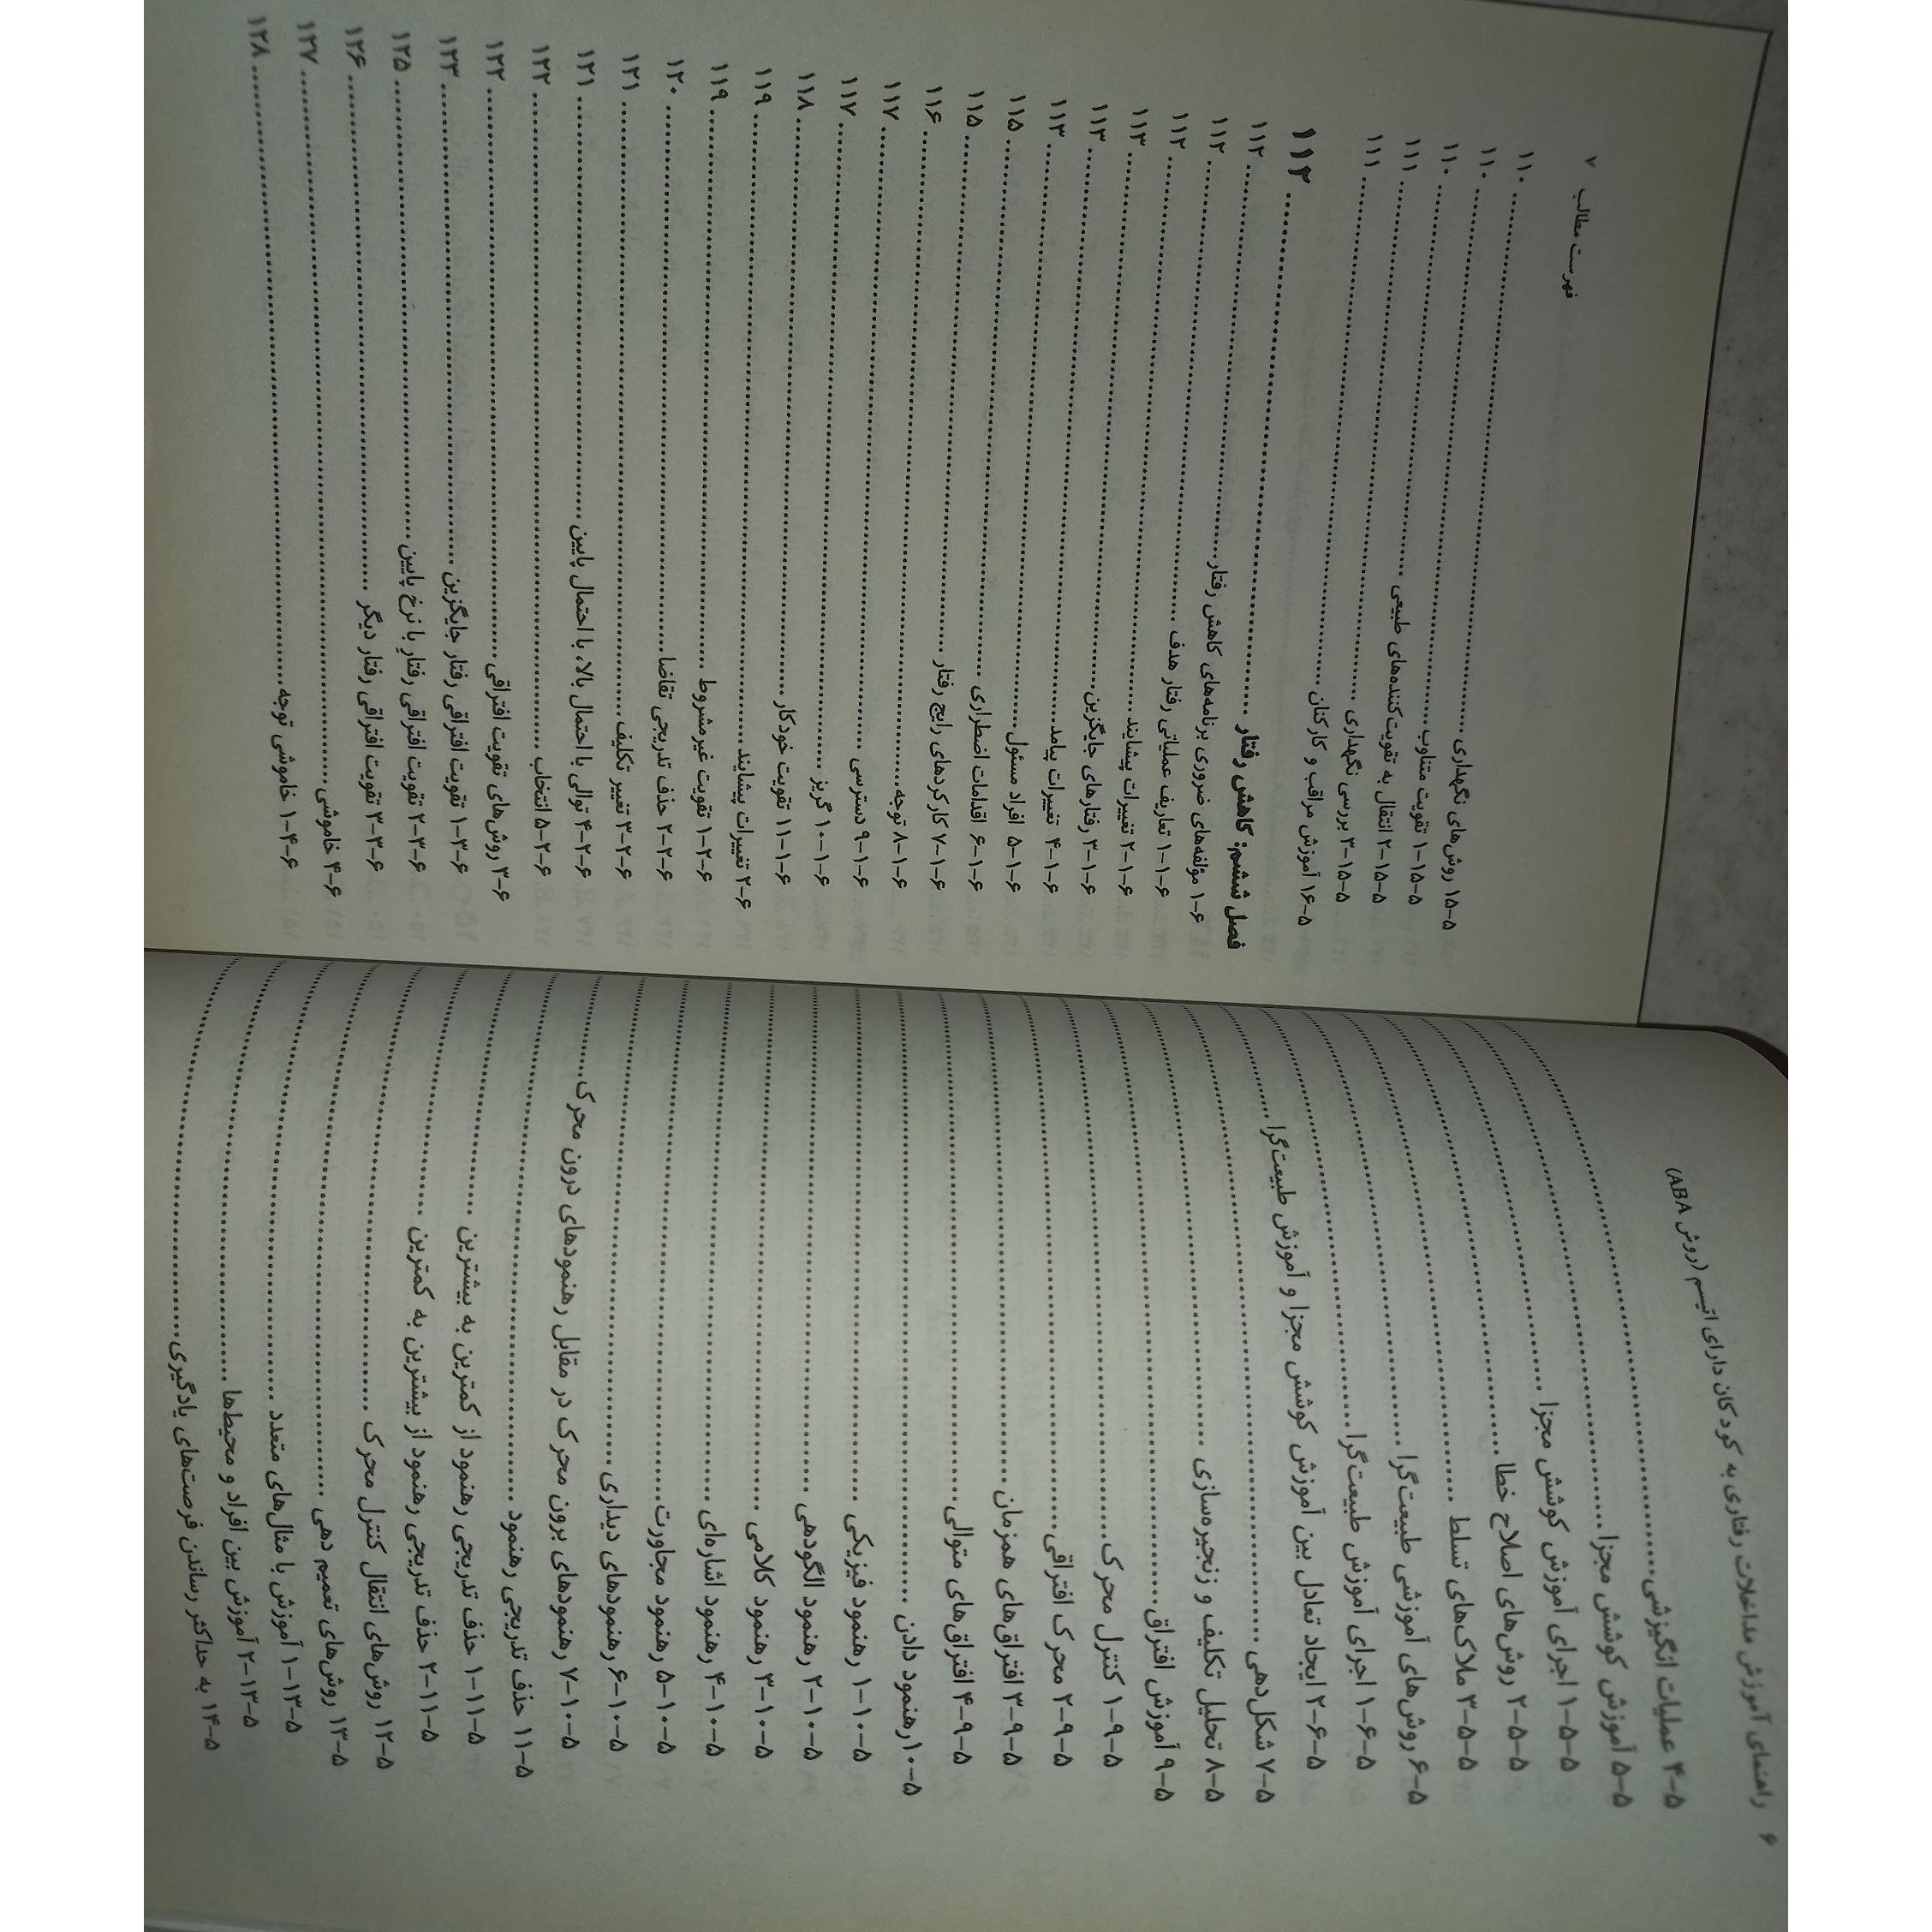 ۶ راهنمای آموزش مداخلات رفتاری به کودکان دارای اتیسم (روش ABA)
۵-۴ عملیات انگیزشی
۵-۵ آموزش کوشش مجزا
۵-۵-۱ اجرای آموزش کوشش مجزا
۵-۵-۲ روش‌های اصلاح خطا
۵-۵-۳ ملاک‌های تسلط
۵-۶ روش‌های آموزشی طبیعت‌گرا
۵-۶-۱ اجرای آموزش طبیعت‌گرا
۵-۶-۲ ایجاد تعادل بین آموزش کوشش مجزا و آموزش طبیعت‌گرا
۵-۷ شکل‌دهی
۵-۸ تحلیل تکلیف و زنجیره‌سازی
۵-۹ آموزش افتراق
۵-۹-۱ کنترل محرک
۵-۹-۲ محرک افتراقی
۵-۹-۳ افتراق‌های همزمان
۵-۹-۴ افتراق‌های متوالی
۵-۱۰ رهنمود دادن
۵-۱۰-۱ رهنمود فیزیکی
۵-۱۰-۲ رهنمود الگودهی
۵-۱۰-۳ رهنمود کلامی
۵-۱۰-۴ رهنمود اشاره‌ای
۵-۱۰-۵ رهنمود مجاورت
۵-۱۰-۶ رهنمودهای دیداری
۵-۱۰-۷ رهنمودهای برون محرک در مقابل رهنمودهای درون محرک
۵-۱۱ حذف تدریجی رهنمود
۵-۱۱-۱ حذف تدریجی رهنمود از کمترین به بیشترین
۵-۱۱-۲ حذف تدریجی رهنمود از بیشترین به کمترین
۵-۱۲ روش‌های انتقال کنترل محرک
۵-۱۳ روش‌های تعمیم دهی
۵-۱۳-۱ آموزش با مثال‌های متعدد
۵-۱۳-۲ آموزش بین افراد و محیط‌ها
۵-۱۴ به حداکثر رساندن فرصت‌های یادگیری
فهرست مطالب ۷
۵-۱۵ روش‌های نگهداری ۱۱۰
۵-۱۵-۱ تقویت متناوب ۱۱۰
۵-۱۵-۲ انتقال به تقویت‌کننده‌های طبیعی ۱۱۰
۵-۱۵-۳ بررسی نگهداری ۱۱۱
۵-۱۶ آموزش مراقب و کارکنان ۱۱۱
فصل ششم: کاهش رفتار ۱۱۲
۶-۱ مؤلفه‌های ضروری برنامه‌های کاهش رفتار ۱۱۲
۶-۱-۱ تعاریف عملیاتی رفتار هدف ۱۱۲
۶-۱-۲ تغییرات پیشایند ۱۱۲
۶-۱-۳ رفتارهای جایگزین ۱۱۳
۶-۱-۴ تغییرات پیامد ۱۱۳
۶-۱-۵ افراد مسئول ۱۱۳
۶-۱-۶ اقدامات اضطراری ۱۱۵
۶-۱-۷ کارکردهای رایج رفتار ۱۱۵
۶-۱-۸ توجه ۱۱۶
۶-۱-۹ دسترسی ۱۱۷
۶-۱-۱۰ گریز ۱۱۷
۶-۱-۱۱ تقویت خودکار ۱۱۸
۶-۲ تغییرات پیشایند ۱۱۹
۶-۲-۱ تقویت غیرمشروط ۱۱۹
۶-۲-۲ حذف تدریجی تقاضا ۱۲۰
۶-۲-۳ تغییر تکلیف ۱۲۱
۶-۲-۴ توالی با احتمال بالا، با احتمال پایین ۱۲۱
۶-۲-۵ انتخاب ۱۲۲
۶-۳ روش‌های تقویت افتراقی ۱۲۲
۶-۳-۱ تقویت افتراقی رفتار جایگزین ۱۲۳
۶-۳-۲ تقویت افتراقی رفتارِ با نرخ پایین ۱۲۵
۶-۳-۳ تقویت افتراقی رفتار دیگر ۱۲۶
۶-۴ خاموشی ۱۲۷
۶-۴-۱ خاموشی توجه ۱۲۸